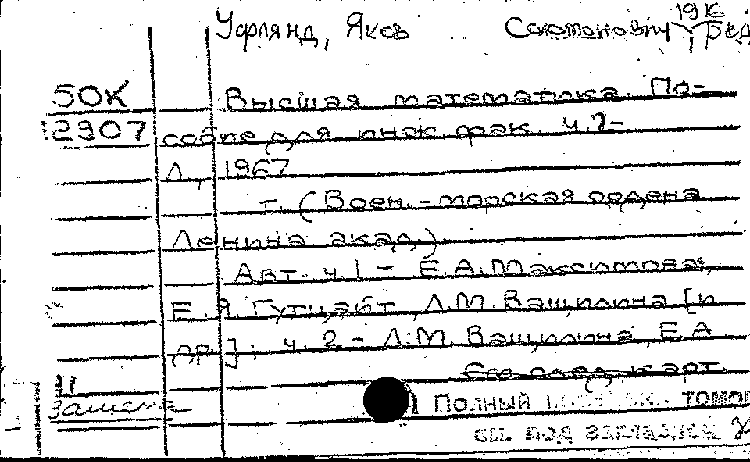 Уфлянд, Яков Соломонович, ред
50К Высшая математика. По-
2907 собие для инж. фак. ч.1-
Л., 1967
т. (Воен.-морская ордена
Ленина акад.)
Авт. ч.1 - Е.А. Максимова,
Е.Я. Гутцайт, Л.М. Ващилина [и
др.]; ч. 2 - Л.М. Ващилина, Е.А.
См. след. карт.
Полный томов
см. под закладкой